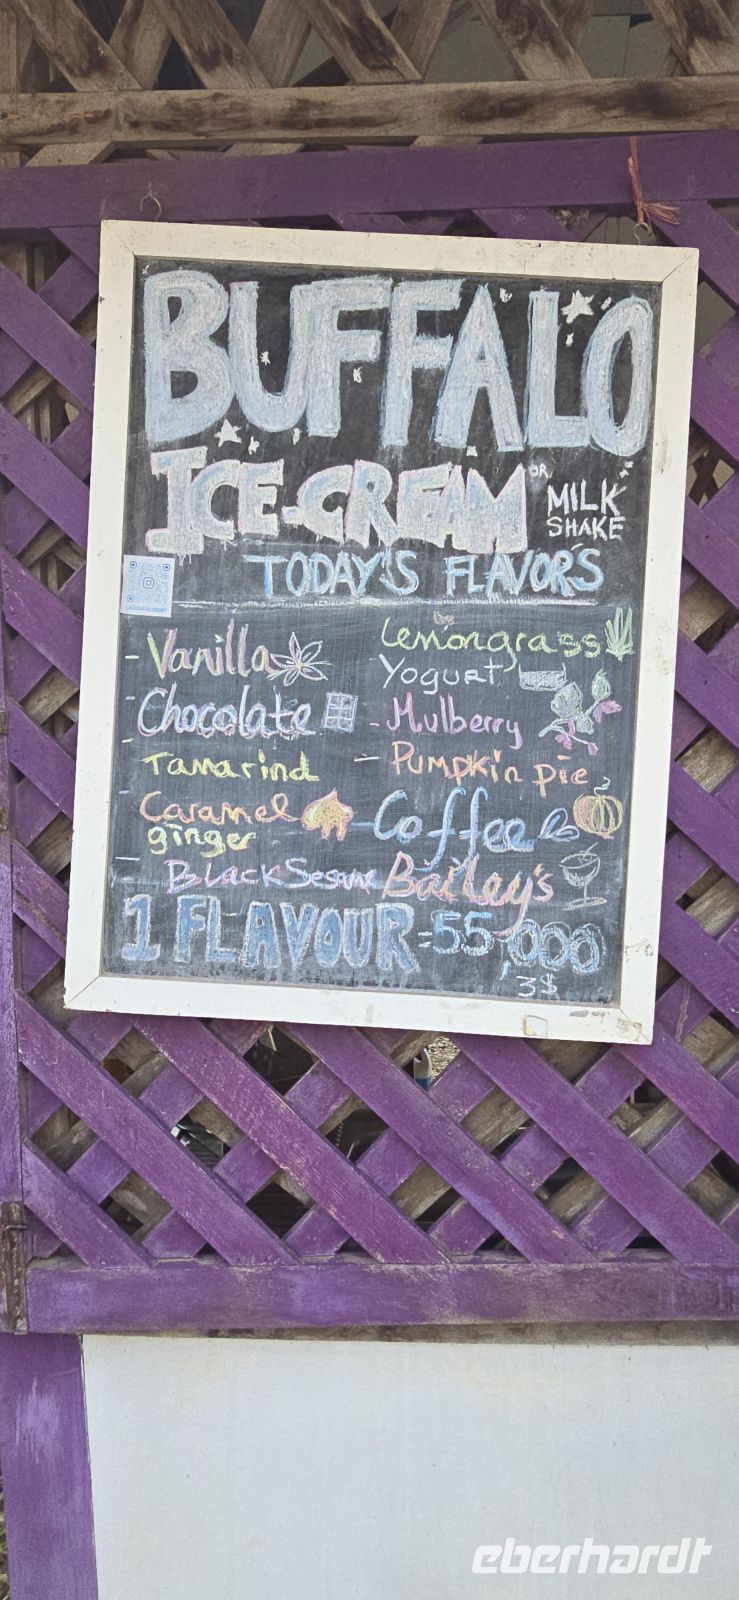 BUFFALO
ICE-CREAM OR MILK SHAKE
TODAY'S FLAVORS
- Vanilla
- Chocolate
- Tamarind
- Caramel ginger
- Black Sesame
Lemongrass
- Yogurt
- Mulberry
- Pumpkin pie
- Coffee
Bailey's
1 FLAVOUR = 55,000
3$
eberhardt